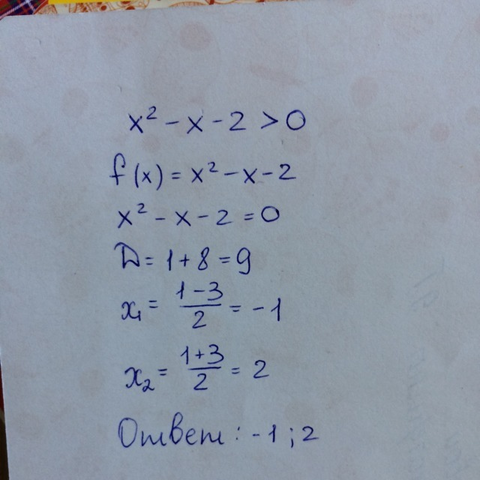 x² - x - 2 > 0
f(x) = x² - x - 2
x² - x - 2 = 0
D = 1 + 8 = 9
x₁ = (1-3)/2 = -1
x₂ = (1+3)/2 = 2
Ответ: -1; 2